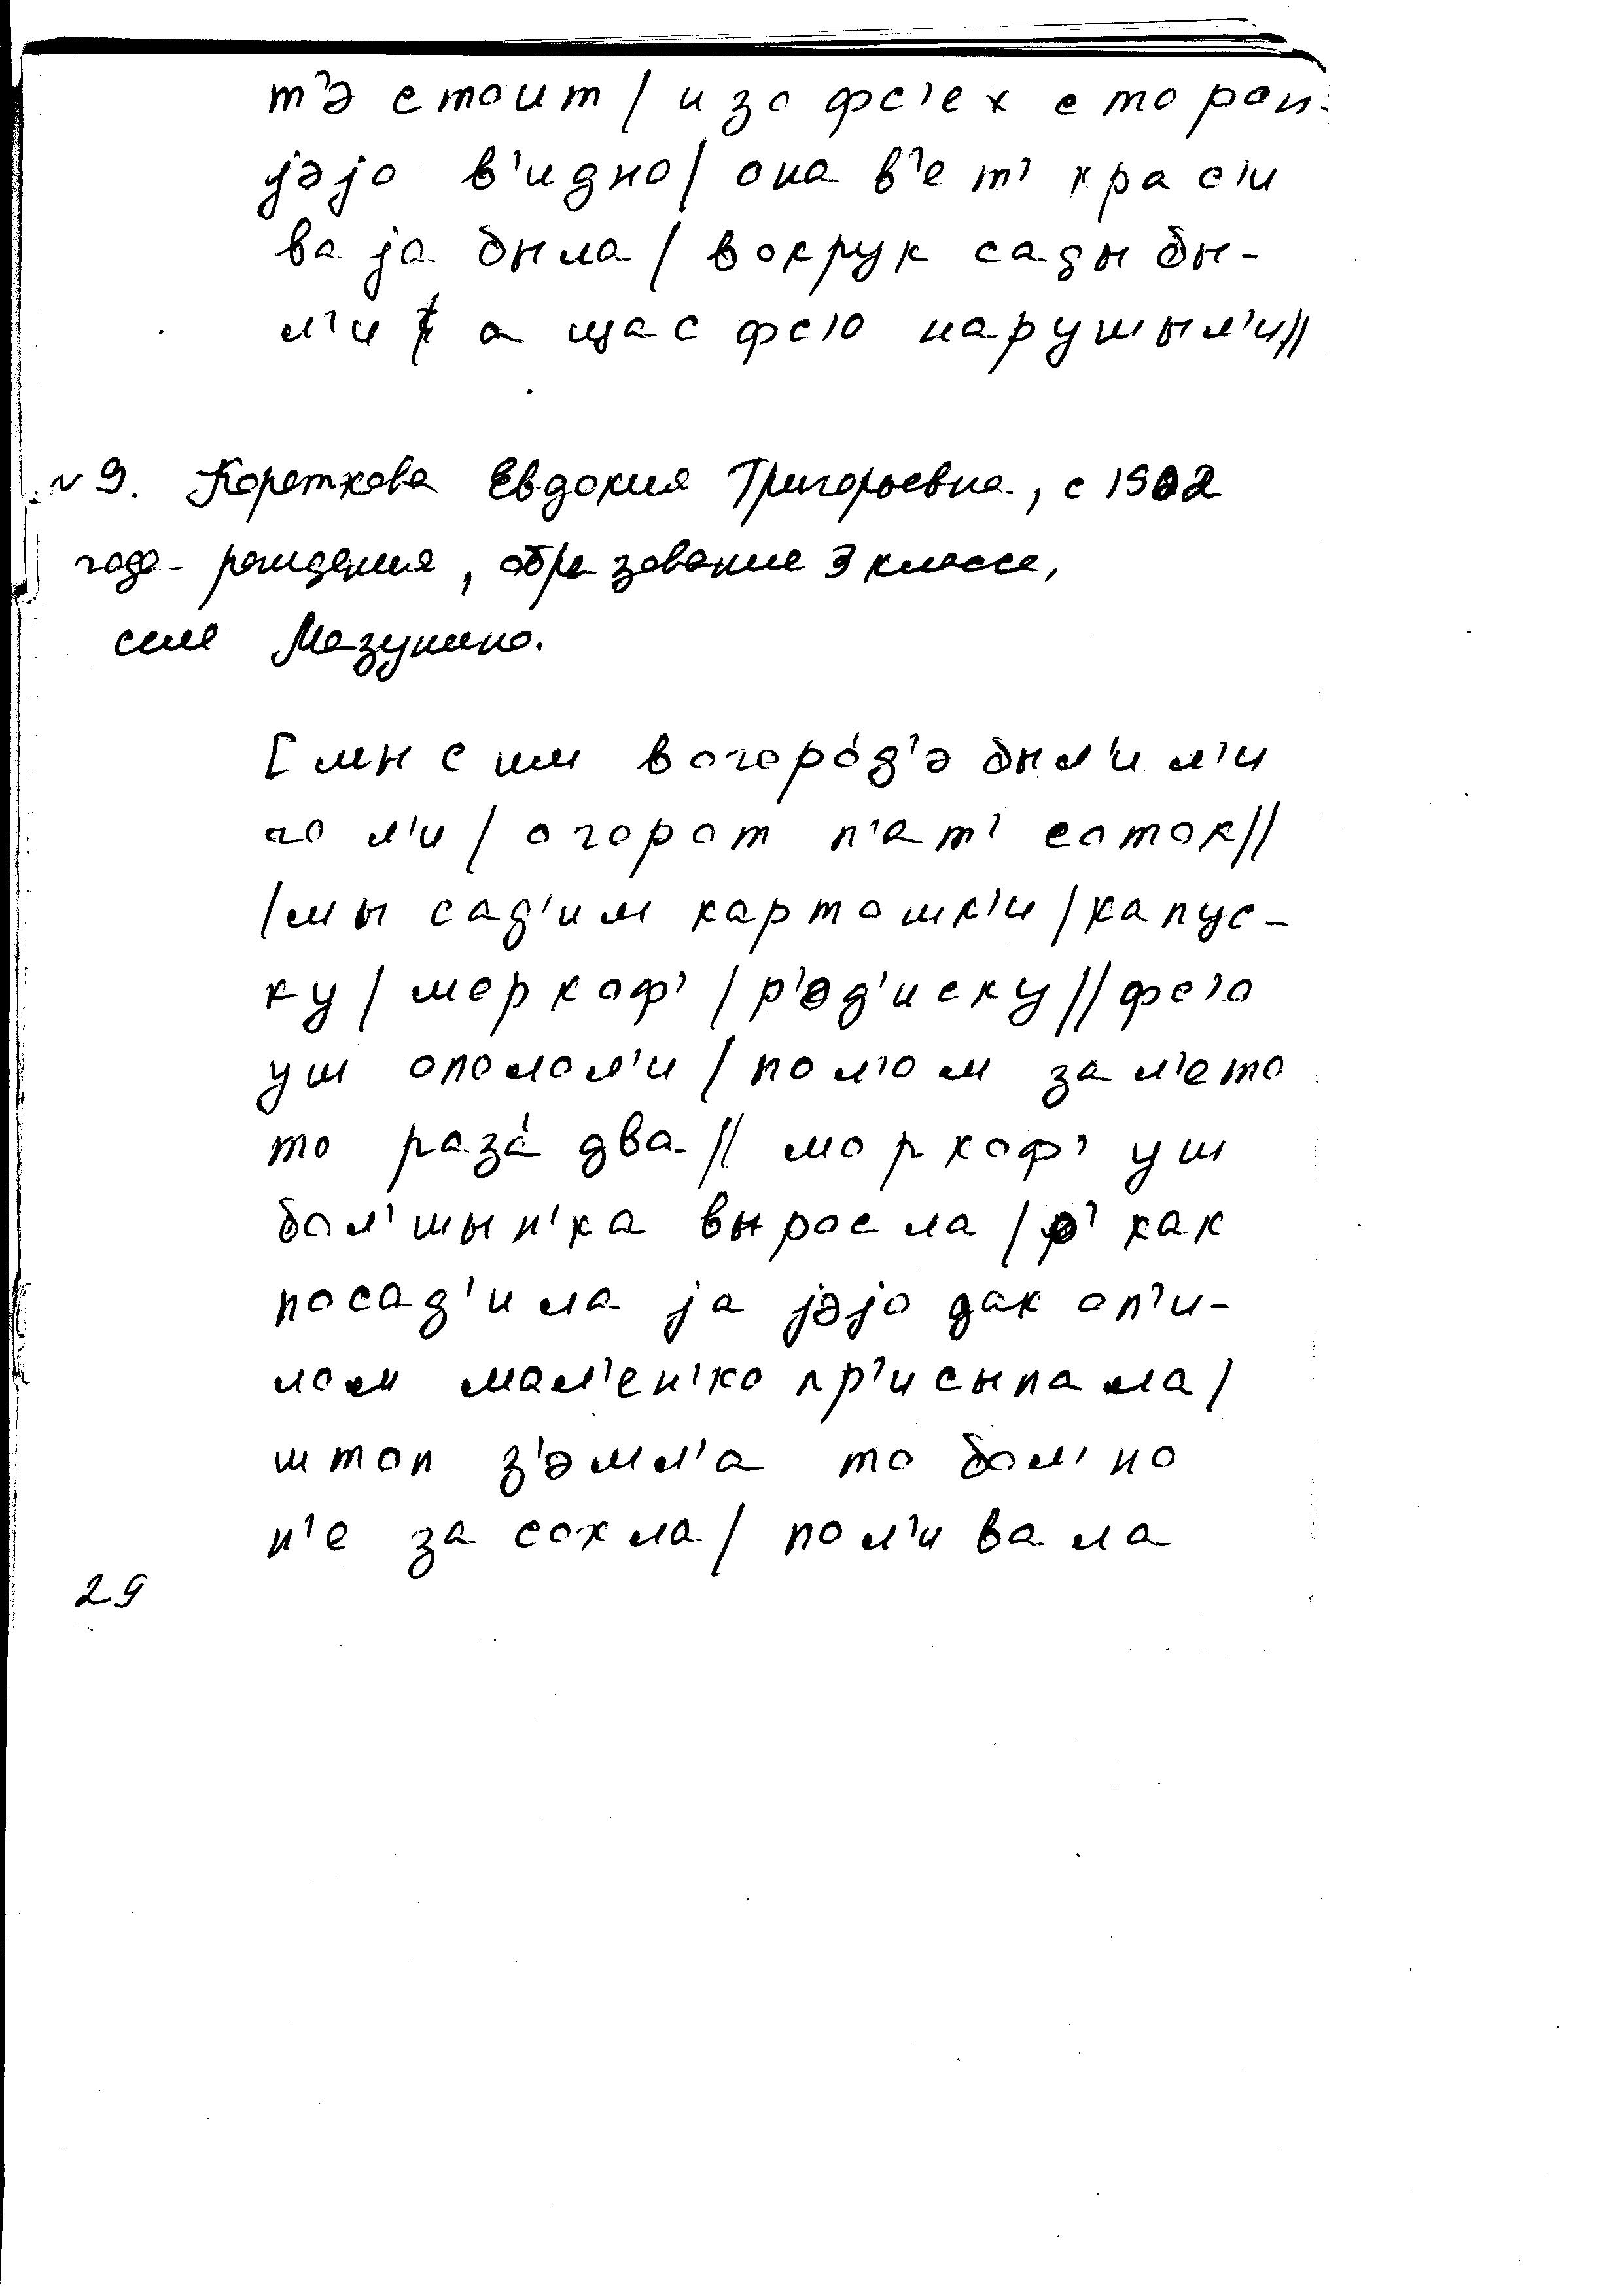 т'э стоит / изо фс'ех сторон
jэjо в'идно / она в'ет' крас'и
ваjа была / вокрук сады бы-
л'и / а щас фс'о нарушыл'и //
№ 9. Короткова Евдокия Григорьевна, с 1902
года рождения, образование 3 класса,
село Мазунино.
[ мы с им вогоро́д'э был'и л'и
чо л'и / огорот п'ат' соток //
/ мы сад'им картошк'и / капус-
ку / моркоф' / р'эд'иску // фс'о
уш ополол'и / пол'ом за л'ето
то раза́ два // моркоф' уш
бол'шын'ка выросла / как
посад'ила jа jэjо дак оп'и-
лом мал'ен'ко пр'исыпала /
штоп з'эмл'а то бол'но
н'е засохла / пол'ивала
29